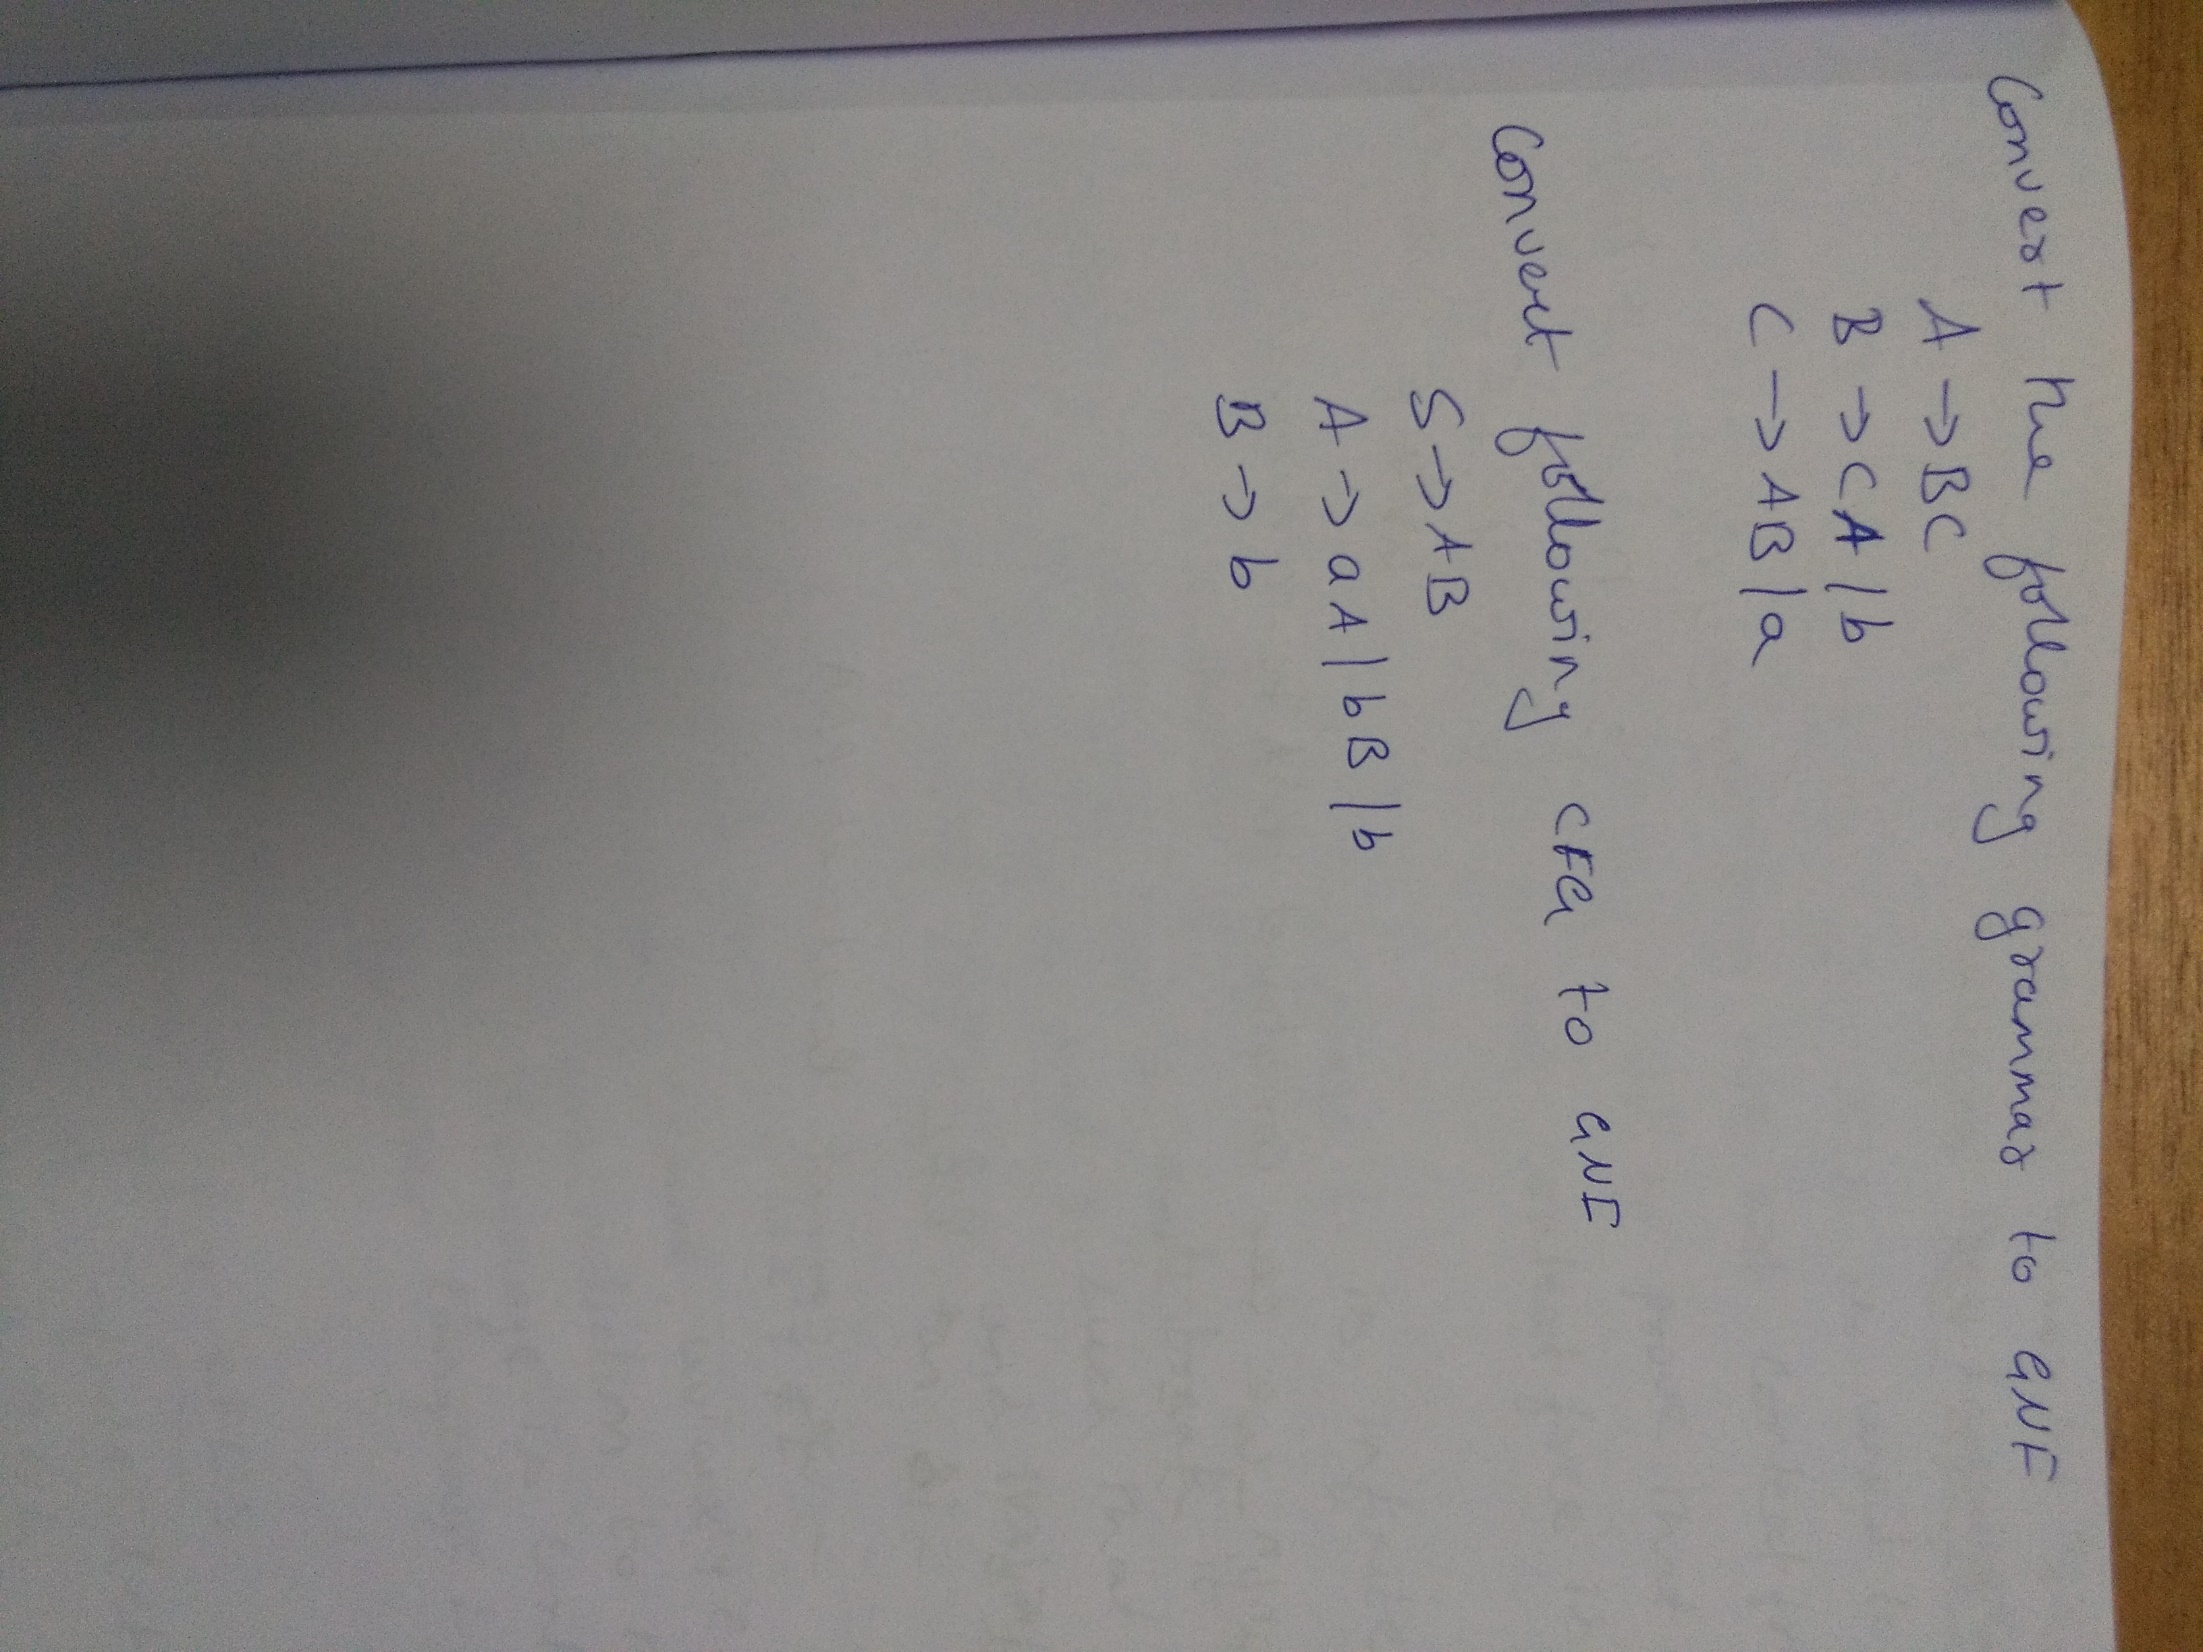 Convert the following grammar to GNF
A → BC
B → CA | b
C → AB | a
Convert following CFG to GNF
S → AB
A → aA | bB | b
B → b